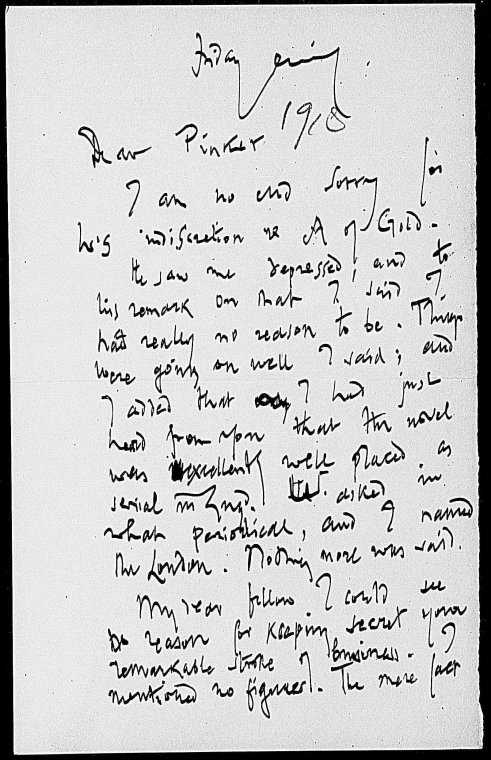 Friday evening.
1918
Dear Pinker
I am no end sorry for
his indiscretion re A of Gold.
He saw me depressed, and to
his remark on that I said I
had really no reason to be. Things
were going on well I said; and
I added that I had just
heard from you that the novel
was excellently well placed as
serial in Engd. He asked in
what periodical, and I named
the London. Nothing more was said.
My dear fellow I could see
no reason for keeping secret your
remarkable stroke of business. I
mentioned no figures. The mere fact